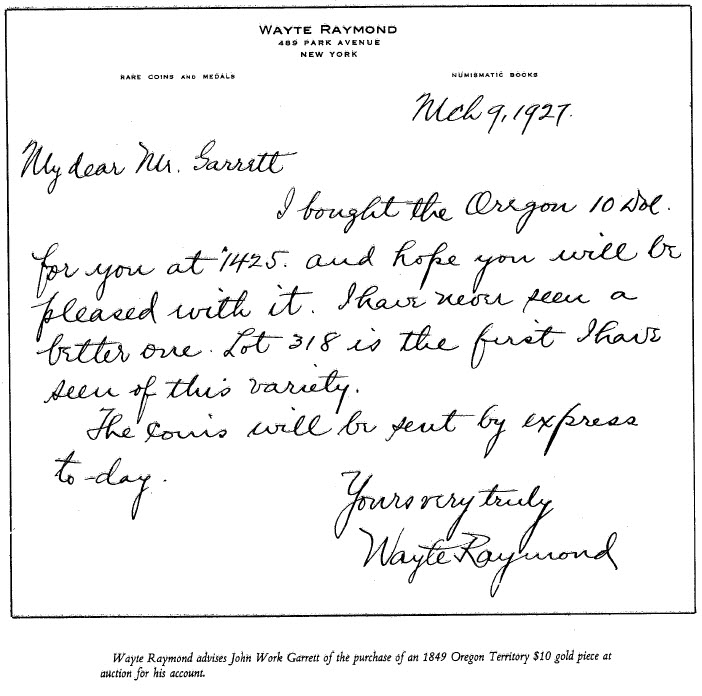 WAYTE RAYMOND
489 PARK AVENUE
NEW YORK
RARE COINS AND MEDALS
NUMISMATIC BOOKS
Mch 9, 1927.
My dear Mr. Garrett
I bought the Oregon 10 Dol.
for you at $1425. and hope you will be
pleased with it. I have never seen a
better one. Lot 318 is the first I have
seen of this variety.
The coins will be sent by express
to-day.
Yours very truly
Wayte Raymond
Wayte Raymond advises John Work Garrett of the purchase of an 1849 Oregon Territory $10 gold piece at
auction for his account.